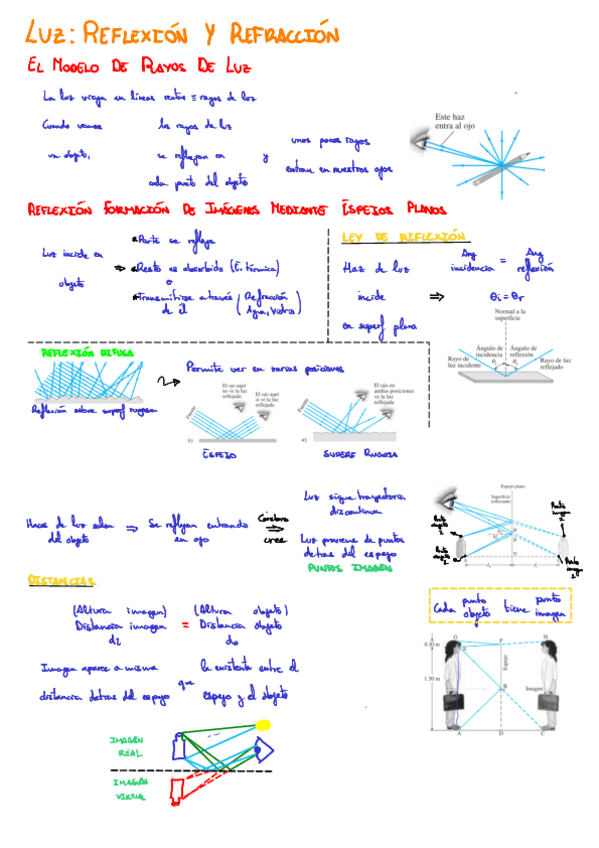 LUZ: REFLEXIÓN Y REFRACCIÓN
EL MODELO DE RAYOS DE LUZ
La luz viaja en líneas rectas ≡ rayos de luz
Cuando vemos
un objeto,
los rayos de luz
se reflejan en
cada punto del objeto
y
unos pocos rayos
entran en nuestros ojos
Este haz
entra al ojo
REFLEXIÓN FORMACIÓN DE IMÁGENES MEDIANTE ESPEJOS PLANOS
Luz incide en
objeto
⇒
Parte se refleja
Resto es absorbido (E. térmica)
o
Transmitirse a través
de él
(Refracción
Agua, Vidrio)
LEY DE REFLEXIÓN
Haz de luz
incide
en superf plana
⇒
Ang
incidencia
=
Ang
reflexión
θi = θr
Normal a la
superficie
Ángulo de
incidencia
Ángulo de
reflexión
θi
θr
Rayo de
luz incidente
Rayo de luz
reflejado
REFLEXIÓN DIFUSA
Reflexión sobre superf rugosa
Permite ver en varias posiciones
Fuente
El ojo aquí
no ve la luz
reflejada
El ojo aquí
sí ve la luz
reflejada
b)
ESPEJO
Fuente
El ojo en
ambas posiciones
ve la luz
reflejada
a)
SUPERF RUGOSA
Haces de luz salen
del objeto
⇒
Se reflejan entrando
en ojo
Cerebro
⇒
cree
Luz sigue trayectoria
discontinua
Luz proviene de puntos
detras del espejo
PUNTOS IMAGEN
Espejo plano
Superficie
reflectante
Punto
objeto
Punto
objeto
Punto
imagen
2
Punto
imagen
DISTANCIAS
(Altura imagen)
Distancia imagen
dI
=
(Altura objeto)
Distancia objeto
do
Imagen aparece a misma
distancia detras del espejo
que
la existente entre el
espejo y el objeto
Cada punto
objeto
tiene punto
imagen
G
F
H
E
Espejo
B
Imagen
1.50 m
A
D
C
IMAGEN
REAL
IMAGEN
VIRTUAL